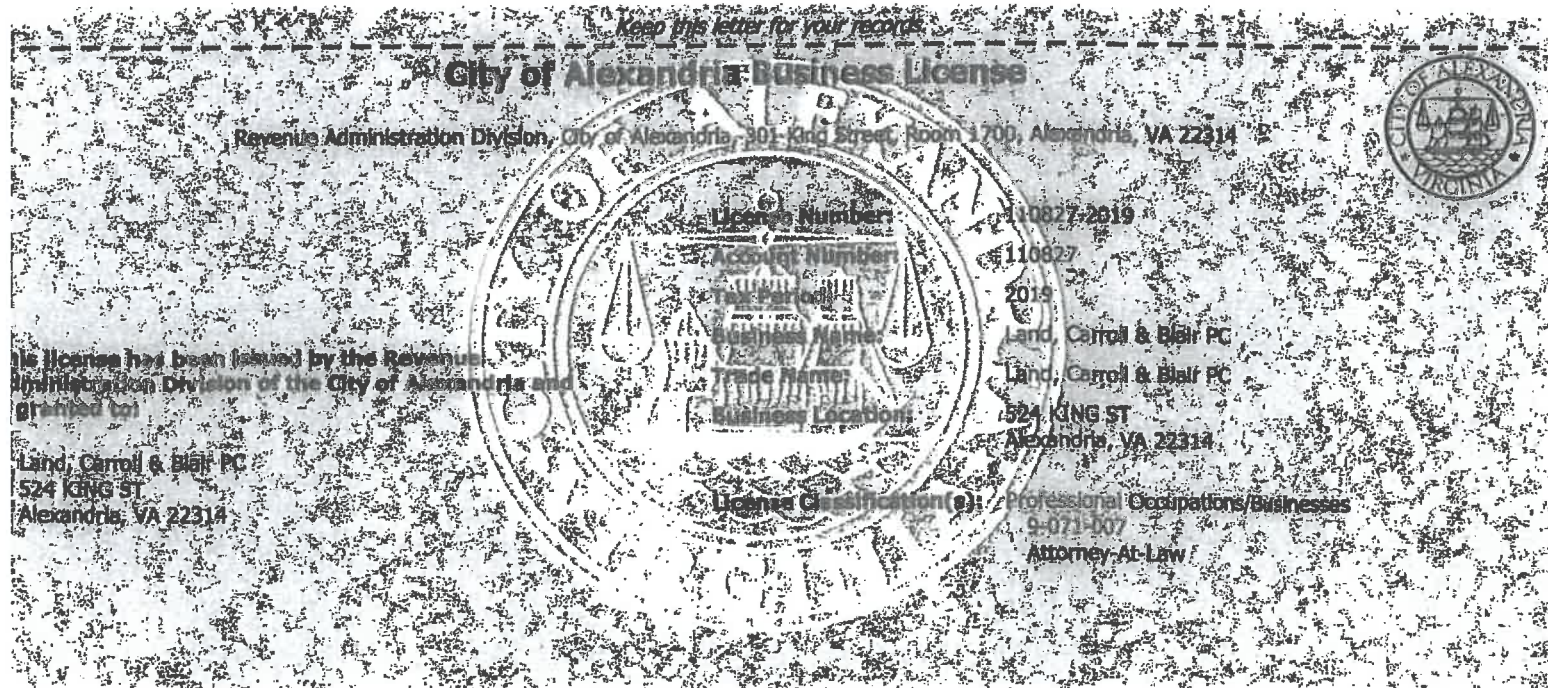 Keep this letter for your records.
City of Alexandria Business License
CITY OF ALEXANDRIA
VIRGINIA
Revenue Administration Division, City of Alexandria, 301 King Street, Room 1700, Alexandria, VA 22314
License Number: 110827-2019
Account Number: 110827
Tax Period: 2019
Business Name: Land, Carroll & Blair PC
Trade Name: Land, Carroll & Blair PC
Business Location: 524 KING ST
Alexandria, VA 22314
License Classification(s): Professional Occupations/Businesses
9-071-007
Attorney-At-Law
his license has been issued by the Revenue
dministration Division of the City of Alexandria and
granted to:
Land, Carroll & Blair PC
524 KING ST
Alexandria, VA 22314